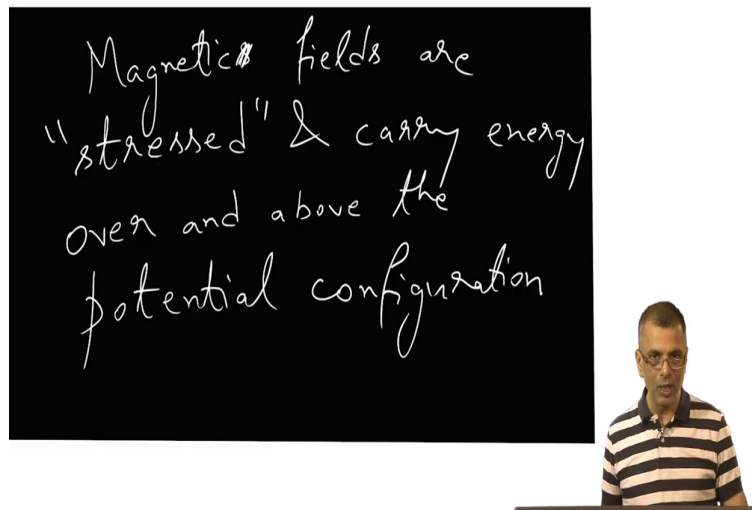 Magnetic fields are
"stressed" & carry energy
over and above the
potential configuration